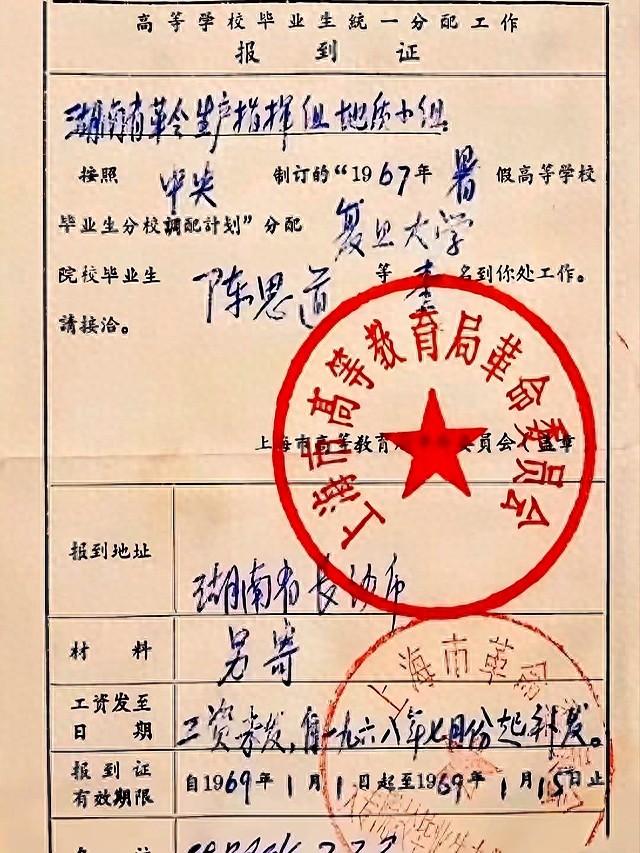 高等学校毕业生統一分配工作
报到证
湖南省革命生产指挥组地质小组
按照 中央 制订的“1967年 暑 假高等学校
毕业生分校調配計划”分配 复旦大学
院校毕业生 陈思道 等 壹 名到你处工作。
請接洽。
上海市高等教育局革命委員会(盖章
上海市高等教育局革命委員会
报到地址 湖南省长沙市
材料 另寄
工资发至日期 工资未发,自一九六八年七月份起补发。
报到证有效期限 自1969年1月1日起至1969年1月15日止
上海市革